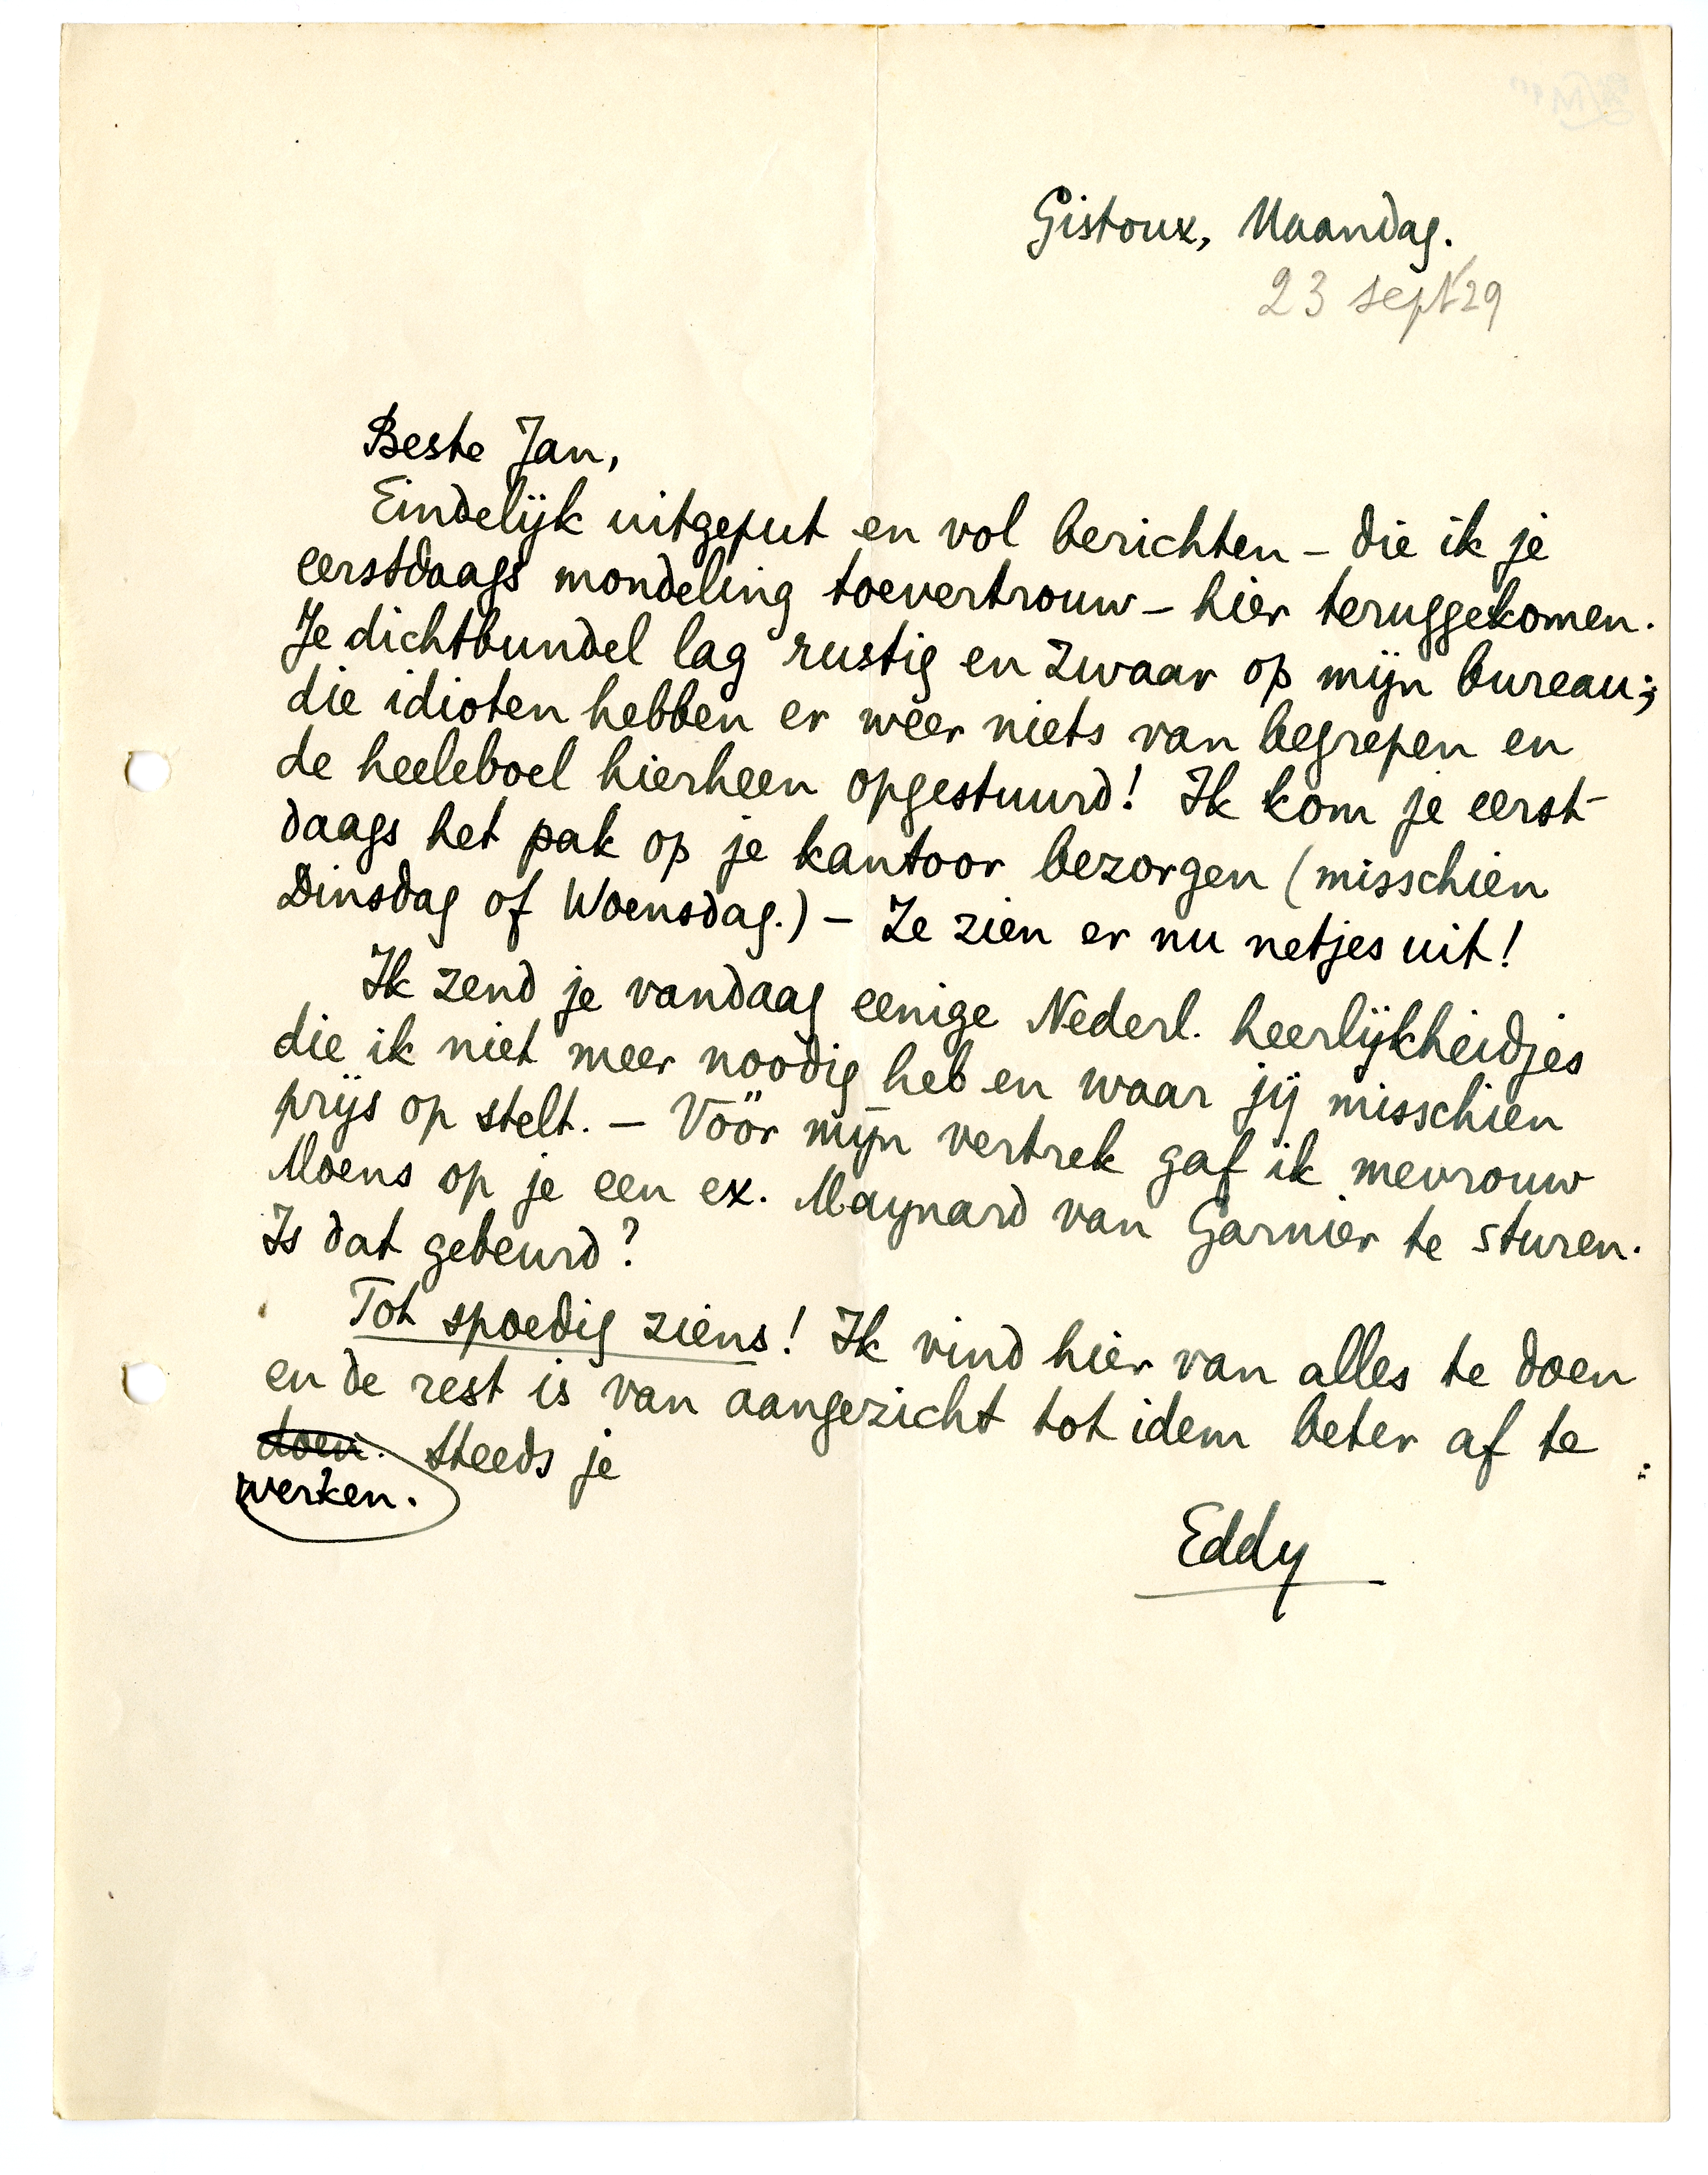 Gistoux, Maandag.
23 sept 29
Beste Jan,
Eindelijk uitgeput en vol berichten – die ik je
eerstdaags mondeling toevertrouw – hier teruggekomen.
Je dichtbundel lag rustig en zwaar op mijn bureau;
die idioten hebben er weer niets van begrepen en
de heeleboel hierheen opgestuurd! Ik kom je eerst-
daags het pak op je kantoor bezorgen (misschien
Dinsdag of Woensdag.) – Ze zien er nu netjes uit!
Ik zend je vandaag eenige Nederl. heerlijkheidjes
die ik niet meer noodig heb en waar jij misschien
prijs op stelt. – Vóór mijn vertrek gaf ik mevrouw
Moens op je een ex. Maynard van Garnier te sturen.
Is dat gebeurd?
Tot spoedig ziens! Ik vind hier van alles te doen
en de rest is van aangezicht tot idem beter af te
doen. steeds je
werken.
Eddy